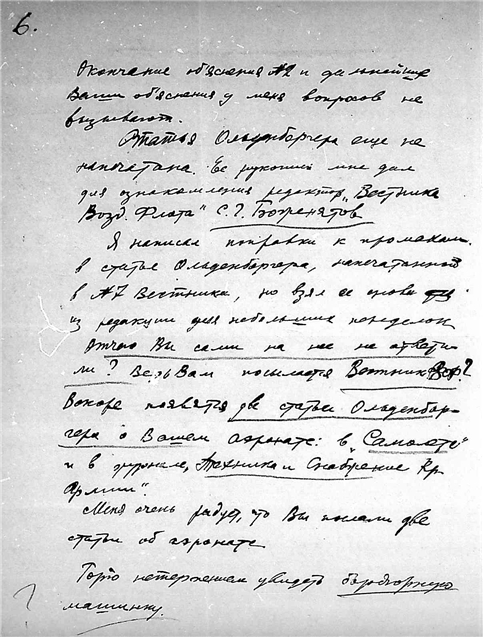 6.
Окончание об'яснения №2 и дальнейшие
Ваши об'яснения у меня вопросов не
вызывают.
Статья Ольденборгера еще не
напечатана. Ее рукопись мне дал
для ознакомления редактор „Вестника
Возд. Флота" С. Г. Боженятов
Я написал поправки к промахам
в статье Ольденборгера, напечатанной
в №7 Вестника, но взял ее снова
из редакции для небольших переделок
Отчего Вы сами на нее не ответи-
ли? Ведь Вам посылается Вестник В.Ф.?
Вскоре появятся две статьи Ольденбор-
гера о Вашем аэронате: в „Самолете"
и в журнале „Техника и Снабжение Кр.
Армии".
Меня очень радует, что Вы послали две
статьи об аэронате
Горю нетерпением увидеть
машинку.